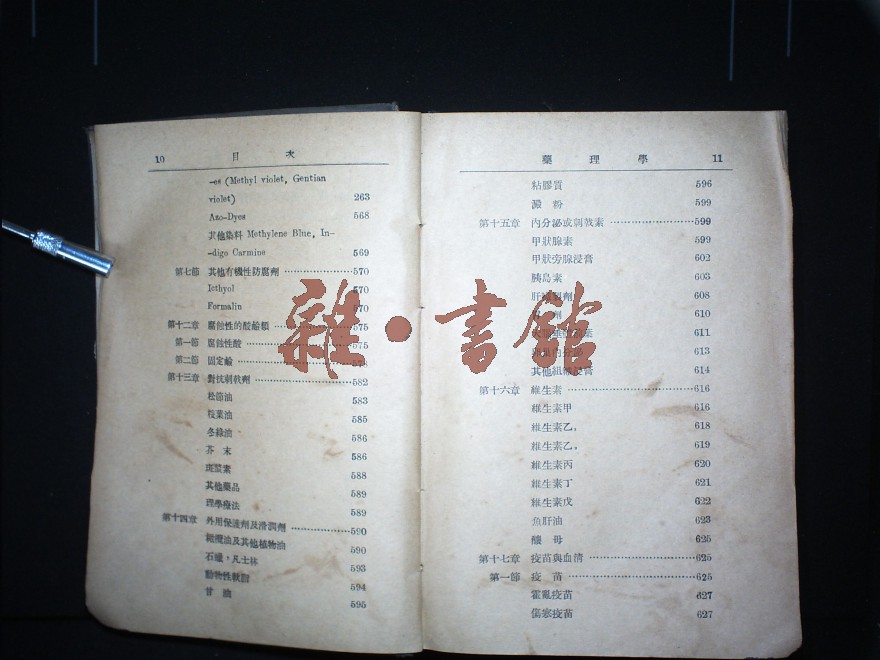 10 目 次
-es (Methyl violet, Gentian
violet) 263
Azo-Dyes 568
其他染料 Methylene Blue, In-
-digo Carmine 569
第七節 其他有機性防腐劑 570
Icthyol 570
Formalin 570
第十二章 腐蝕性的酸鹼類 575
第一節 腐蝕性酸 575
第二節 固定鹼 578
第十三章 對抗刺戟劑 582
松節油 583
桉葉油 585
冬綠油 586
芥末 586
斑蝥素 588
其他藥品 589
理學療法 589
第十四章 外用保護劑及滑潤劑 590
橄欖油及其他植物油 590
石蠟,凡士林 593
動物性軟脂 594
甘油 595
藥 理 學 11
粘膠質 596
澱粉 599
第十五章 內分泌或刺戟素 599
甲狀腺素 599
甲狀旁腺浸膏 602
胰島素 603
肝 劑 608
劑 610
素 611
613
其他組織浸膏 614
第十六章 維生素 616
維生素甲 616
維生素乙₁ 618
維生素乙₂ 619
維生素丙 620
維生素丁 621
維生素戊 622
魚肝油 623
釀母 625
第十七章 疫苗與血清 625
第一節 疫苗 625
霍亂疫苗 627
傷寒疫苗 627
雜·書館